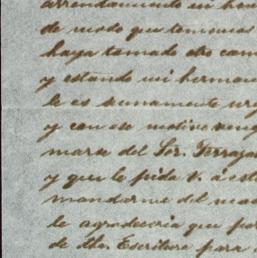 arrendamiento un hon
de modo que tenemos
haya tomado otro cam
y estando mi herman
le es sumamente urg
y con ese motivo veng
marse del Sor. Terraza
y que le pida V. á est
mandarme del mod
le agradeceria que por
de dha. Escritura para